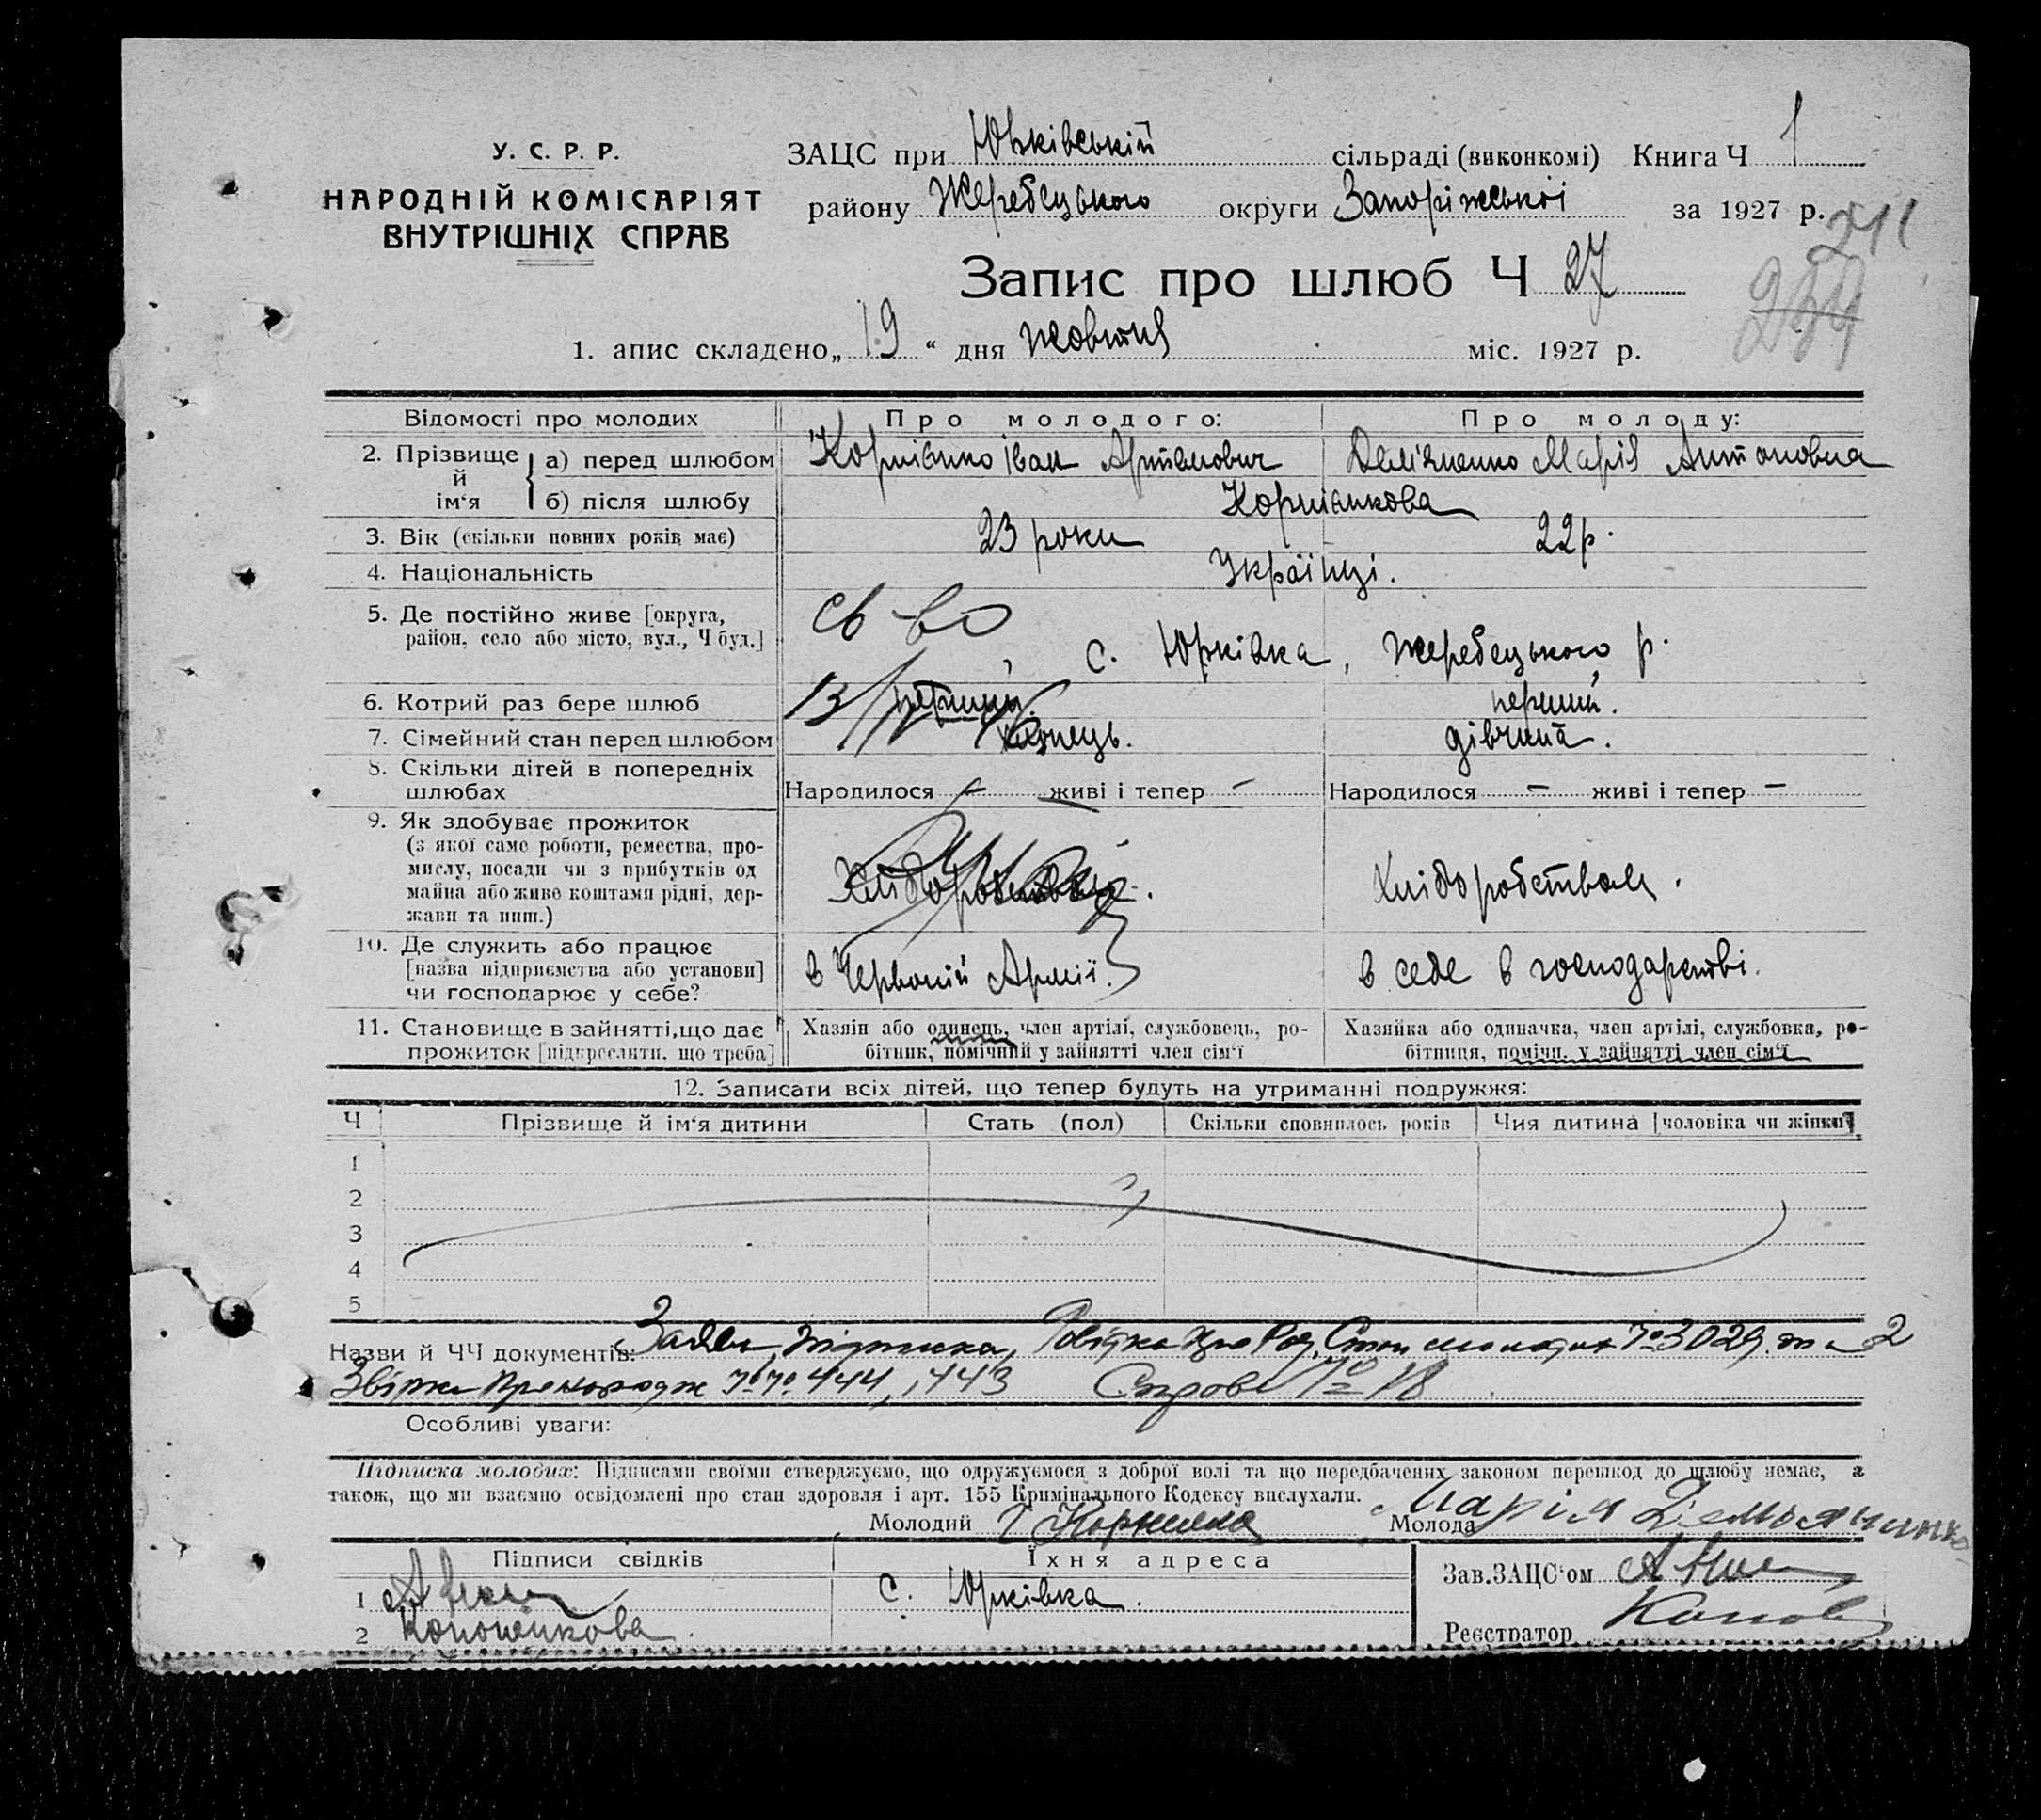 У. С. Р. Р.
НАРОДНІЙ КОМІСАРІЯТ
ВНУТРІШНІХ СПРАВ
ЗАЦС при Юрківській сільраді (виконкомі) Книга Ч 1
району Жеребецького округи Запоріжської за 1927 р.
241
Запис про шлюб Ч 27
1. апис складено „19“ дня жовтня міс. 1927 р.
Відомості про молодих
Про молодого:
Про молоду:
2. Прізвище й ім‘я
а) перед шлюбом
Іван Артемович
Марія Антоновна
б) після шлюбу
3. Вік (скільки повних років має)
23 роки
22 р.
4. Національність
Українці.
5. Де постійно живе [округа, район, село або місто, вул., Ч буд.]
с. Юрківка, Жеребецького р.
6. Котрий раз бере шлюб
перший.
перший.
7. Сімейний стан перед шлюбом
дівчина.
8. Скільки дітей в попередніх шлюбах
Народилося – живі і тепер –
Народилося – живі і тепер –
9. Як здобуває прожиток
(з якої саме роботи, ремества, про-
мислу, посади чи з прибутків од
майна або живе коштами рідні, дер-
жави та инш.)
Хліборобством.
10. Де служить або працює
[назва підприємства або установи]
чи господарює у себе?
в Червоній Армії.
в себе в господарстві.
11. Становище в зайнятті, що дає
прожиток [підкреслити, що треба]
Хазяїн або одинець, член артілі, службовець, ро-
бітник, помічний у зайнятті член сім‘ї
Хазяйка або одиначка, член артілі, службовка, ро-
бітниця, помічн. у зайнятті член сім‘ї
12. Записати всіх дітей, що тепер будуть на утриманні подружжя:
Ч
Прізвище й ім‘я дитини
Стать (пол)
Скільки сповнилось років
Чия дитина [чоловіка чи жінки]
1
2
3
4
5
Назви й ЧЧ документів: Заява, підписка,
444, 443
Особливі уваги:
Підписка молодих: Підписами своїми стверджуємо, що одружуємося з доброї волі та що передбачених законом перешкод до шлюбу немає, а
також, що ми взаємно освідомлені про стан здоровля і арт. 155 Кримінального Кодексу вислухали.
Молодий
Молода Марія
Підписи свідків
Їхня адреса
1
с. Юрківка.
2
Зав.ЗАЦС‘ом
Реєстратор